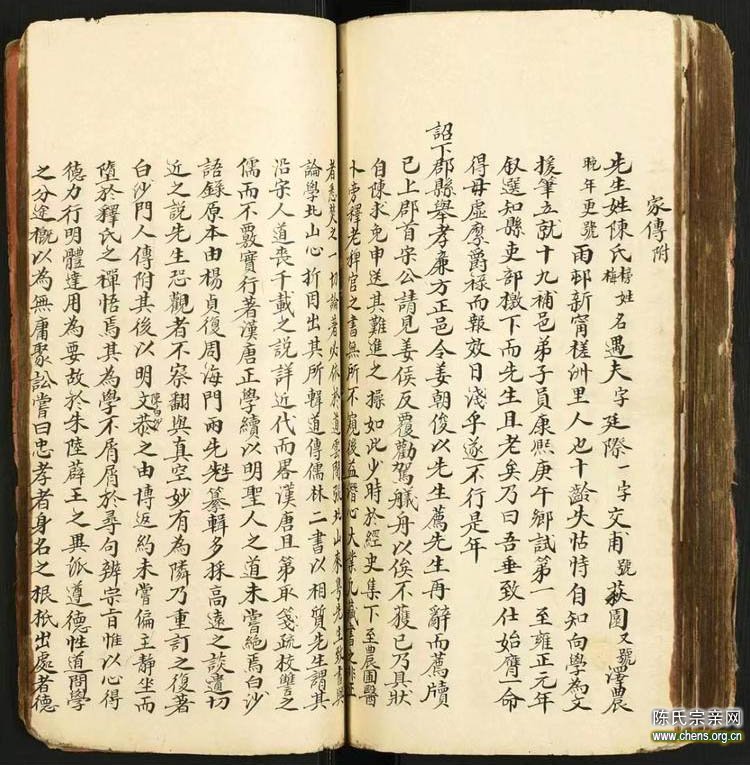 家傳附
先生姓陳氏榜姓梅名遇夫字廷際一字交甫號荻園又號澤農
晚年更號雨邨新甯槎洲里人也十齡失怙恃自知向學為文
援筆立就十九補邑弟子員康熙庚午鄉試第一至雍正元年
銓選知縣吏部檄下而先生且老矣乃曰吾垂致仕始膺一命
得毋虛縻爵祿而報效日淺乎遂不行是年
詔下郡縣舉孝廉方正邑令姜朝俊以先生薦先生再辭而薦牘
已上郡首宋公請見姜侯反覆勸駕艤舟以俟不獲已乃具狀
自陳求免申送其難進之操如此少時於經史集下至農圃醫
卜旁釋老稗官之書無所不窺後益潛心大業凡
者悉焚之一切論著必依於道雲間張北山來粵先生致書與
論學北山心折因出其所輯道傳儒林二書以相質先生謂其
沿宋人道喪千載之說詳近代而畧漢唐且第取箋疏校讐之
儒而不覈實行著漢唐正學續以明聖人之道未嘗絕焉白沙
語錄原本由楊貞復周海門兩先生纂輯多採高遠之談遺切
近之說先生恐觀者不察翻與真空妙有為隣乃重訂之復著
白沙門人傳附其後以明文恭之由博返約未嘗偏主靜坐而
墮於釋氏之禪悟焉其為學不屑屑於尋句辨宗旨惟以心得
德力行明體達用為要故於朱陸薜王之異派遵德性道問學
之分途概以為無庸聚訟嘗曰忠孝者身名之根柢出處者德
陈氏宗亲网
www.chens.org.cn